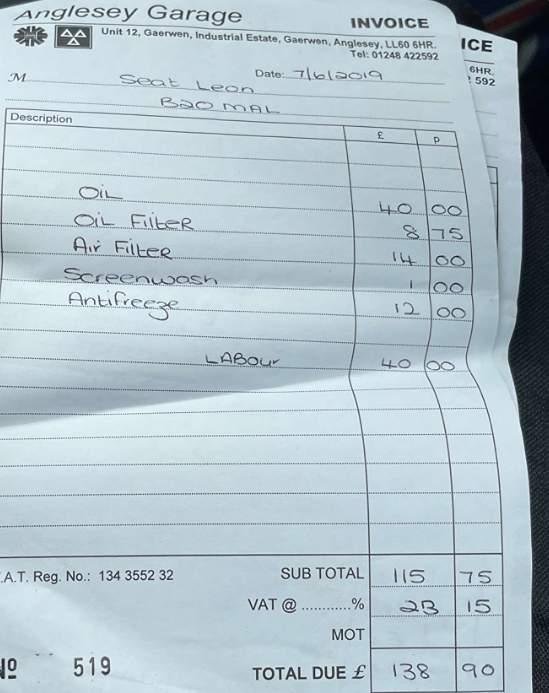 Anglesey Garage
INVOICE
Unit 12, Gaerwen, Industrial Estate, Gaerwen, Anglesey, LL60 6HR.
Tel: 01248 422592
ICE
6HR.
592
M Seat Leon Date: 7/6/2019
B20 MAL
Description £ p
OiL 40 00
OiL FiLtER 8 75
Air FiLtER 14 00
Screenwash 1 00
Antifreeze 12 00
LABOur 40 00
.A.T. Reg. No.: 134 3552 32 SUB TOTAL 115 75
VAT @ ............% 23 15
MOT
Nº 519 TOTAL DUE £ 138 90